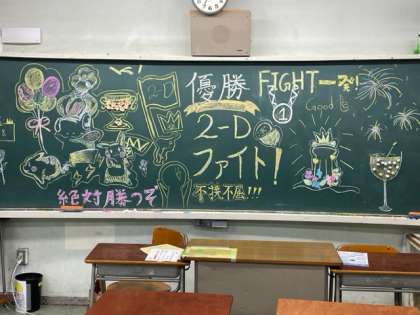 2-D
優勝
2-D
ファイト!
不撓不屈!!!
FIGHT一発!
Good
1
絶対勝つぞ